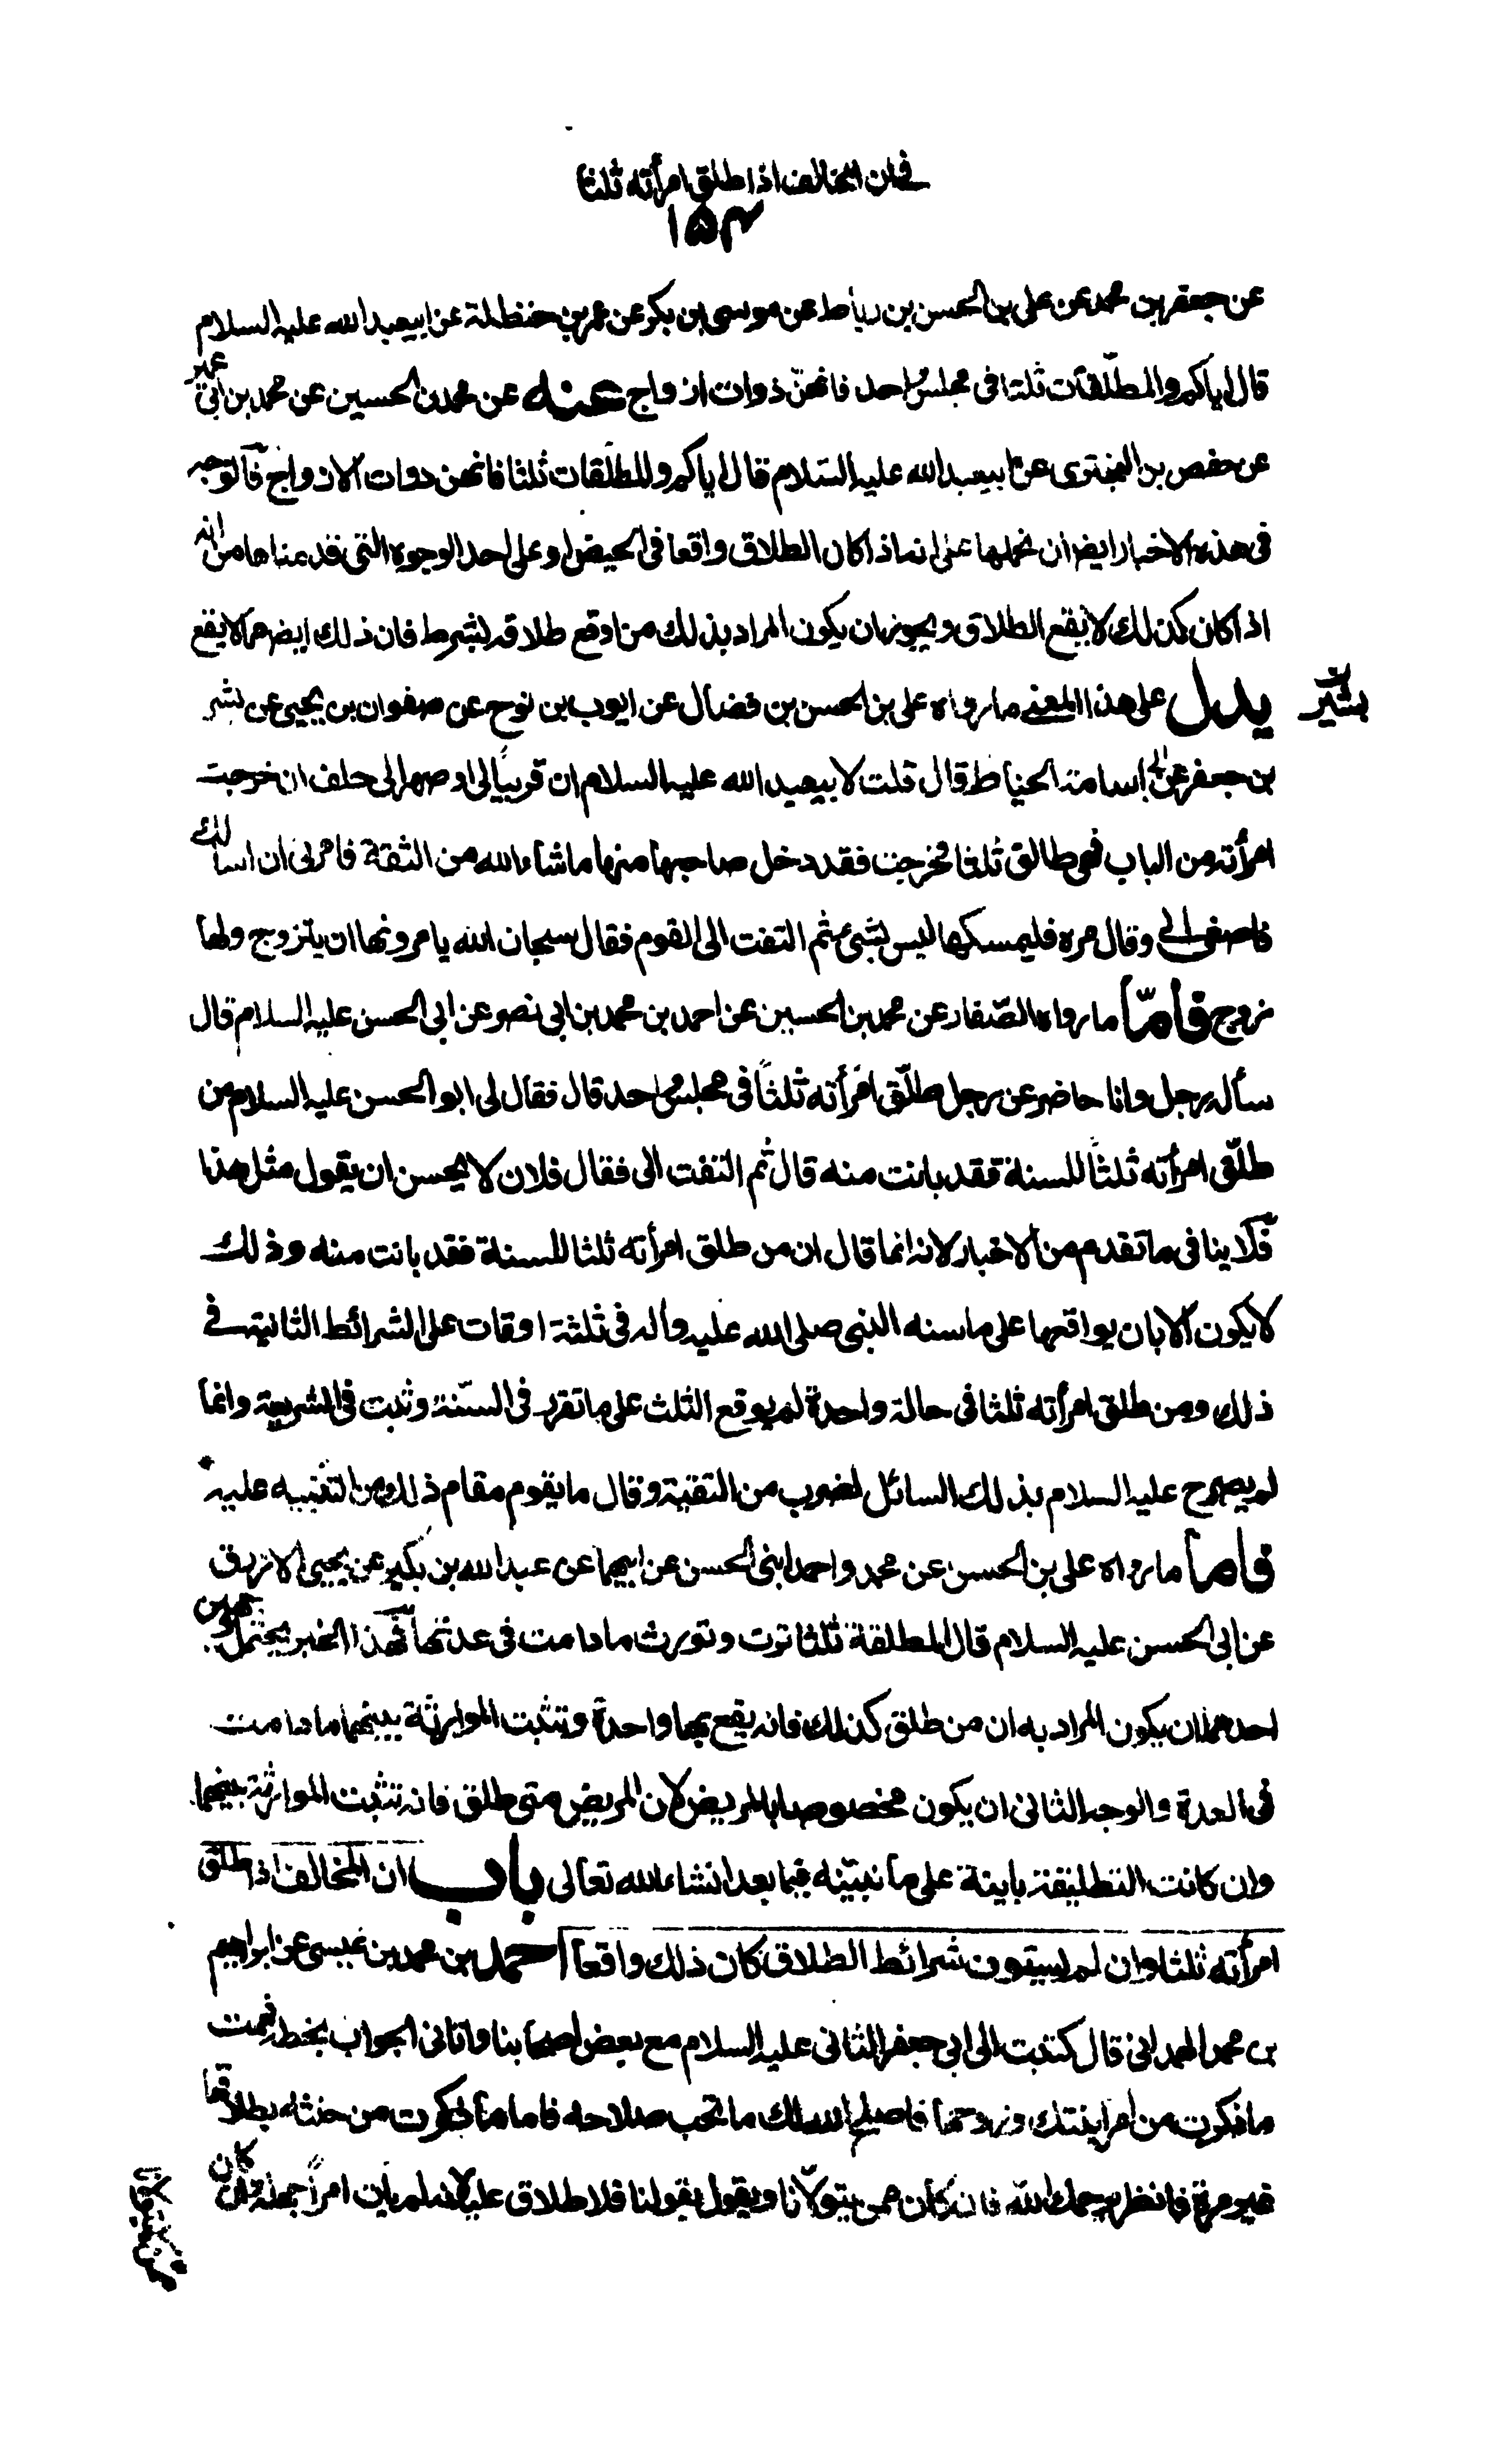 في ان المخالف اذا طلق امرأته ثلثا
۱۵۴
عن جعفر بن محمد عن علي بن الحسن بن رباط عن موسى بن بكر عن عمر بن حنظلة عن ابيعبد الله عليه السلام
قال اياكم والمطلّقات ثلثا في مجلس واحد فانهنّ ذوات ازواج عنه عن محمد بن الحسين عن محمد بن ابي عمير
عن حفص بن البختري عن ابيعبد الله عليه السّلام قال اياكم والمطلّقات ثلثا فانهن ذوات الازواج فالوجه
في هذه الاخبار ايضا ان نحملها على انه اذا كان الطلاق واقعا في الحيض او على احد الوجوه التي قدمناها من انه
اذا كان كذلك لا يقع الطلاق ويجوز ان يكون المراد بذلك من اوقع طلاقه بشرط فان ذلك ايضا مما لا يقع
يدل على هذا المعنى ما رواه علي بن الحسن بن فضال عن ايوب بن نوح عن صفوان بن يحيى عن بشر
بشير
بن جعفر عن ابي اسامة الحناط قال قلت لابيعبد الله عليه السلام ان قريبا لي او صهرا لي حلف ان خرجت
امرأته من الباب فهي طالق ثلثا فخرجت فقد دخل صاحبها منها ما شاء الله من الثقة فامرني ان اسألك
فاصغى الي وقال مره فليمسكها ليس بشئ ثم التفت الى القوم فقال سبحان الله يامرونها ان يتزوج ولها
زوج فأمّا ما رواه الصّفار عن محمد بن الحسين عن احمد بن محمد بن ابي نصر عن ابي الحسن عليه السلام قال
سأله رجل وانا حاضر عن رجل طلّق امرأته ثلثاً في مجلس واحد قال فقال لي ابو الحسن عليه السلام من
طلّق امرأته ثلثاً للسنة فقد بانت منه قال ثم التفت الى فقال فلان لا يحسن ان يقول مثل هذا
فلا ينافي ما تقدم من الاخبار لانه انما قال ان من طلق امرأته ثلثا للسنة فقد بانت منه وذلك
لا يكون الا بان يواقعها على ما سنه النبي صلى الله عليه واله في ثلثة اوقات على الشرائط الثانية في
ذلك ومن طلق امرأته ثلثا في حالة واحدة لم يوقع الثلث على ما تقرر في السنّة وثبت في الشريعة وانما
لم يصرح عليه السلام بذلك السائل لضرب من التقية وقال ما يقوم مقام ذلك من التنبيه عليه
فأما ما رواه علي بن الحسن عن محمد واحمد ابني الحسن عن ابيهما عن عبد الله بن بكير عن يحيى الازرق
عن ابي الحسن عليه السلام قال المطلقة ثلثا ترث وتورث ما دامت في عدتها فهذا الخبر يحتمل وجهين
احدهما ان يكون المراد به ان من طلق كذلك فانه يقع بها واحدة وتثبت الموارثة بينهما ما دامت
في العدة والوجه الثاني ان يكون مخصوصا بالمريض لان المريض متى طلق فانه تثبت الموارثة بينهما
وان كانت التطليقة باينة على ما نبيّنه فيما بعد انشاء الله تعالى باب ان المخالف اذا طلق
امرأته ثلثا وان لم يستوف شرائط الطلاق كان ذلك واقعا احمد بن محمد بن عيسى عن ابراهيم
بن محمد الهمداني قال كتبت الى ابي جعفر الثاني عليه السلام مع بعض اصحابنا واتاني الجواب بخطه فهمت
ما ذكرت من امر ابنتك وزوجها فاصلح الله لك ما تحب صلاحه فاما ما ذكرت من حنثه بطلاقها
غير مرة فانظر يرحمك اللّه فان كان ممن يتولّانا ويقول بقولنا فلا طلاق عليه لانه لم يأت امراً جهله وان كان